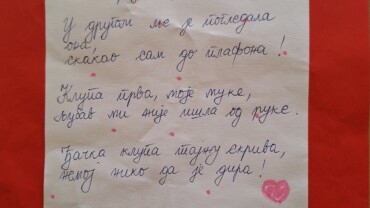 У другом ме је погледала
она,
скакао сам до плафона!
Клупа прва, моје муке,
љубав ми није ишла од руке.
Ђачка клупа тајну скрива,
немој нико да је дира!